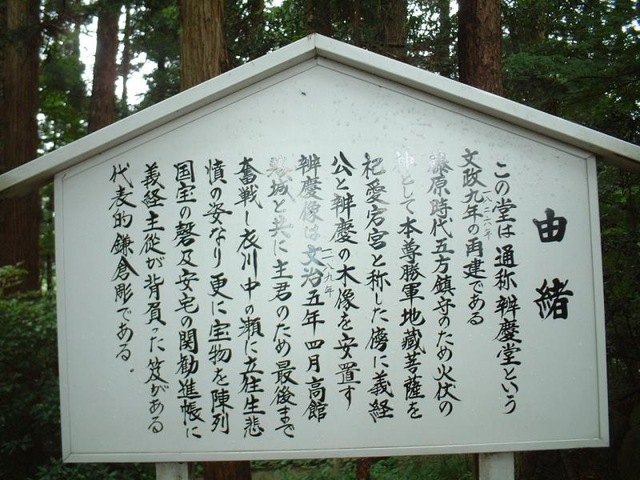 由緒
この堂は通称辨慶堂という
文政九年の再建である
一八二六年
藤原時代五方鎮守のため火伏の
神として本尊勝軍地蔵菩薩を
祀愛宕宮と称した傍に義経
公と辨慶の木像を安置す
辨慶像は文治五年四月高館
一一八九年
落城と共に主君のため最後まで
奮戦し衣川中の瀬に立往生悲
憤の姿なり更に宝物を陳列
国宝の磬及安宅の関勧進帳に
義経主従が背負った笈がある
代表的鎌倉彫である。